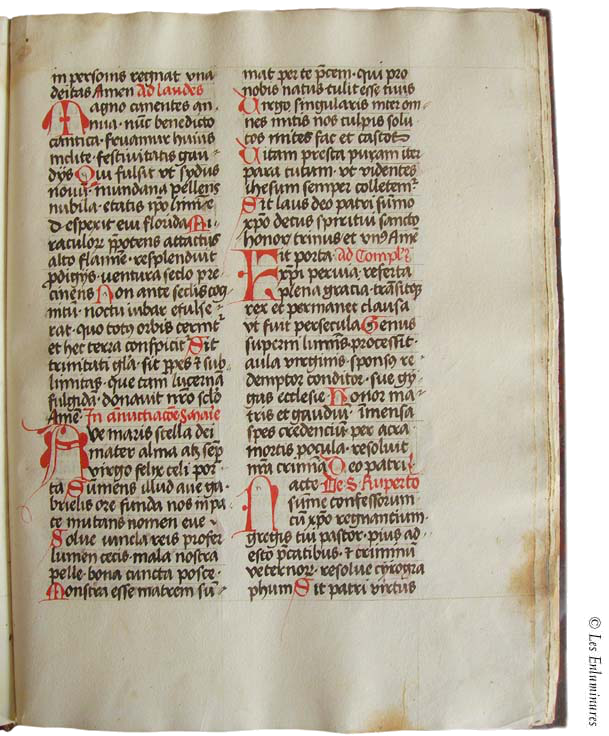 in personis regnat vna
deitas Amen Ad laudes
Magno canentes an-
nua· nūc benedicto
cantica· fruamur huius
inclite· festiuitatis gau-
dijs Qui fulsit vt sydus
nouū· mundana pellens
nubila· etatis
florida Mi-
raculoꝝ attactus
alto flamīe· resplenduit
pdigijs· ventura seclo pre
cinēns Non ante seclis cog-
nitū· noctu iubar effulse-
rat· quo totꝰ orbis cernit᷑
et hec terra conspicit Sit
trinitati gl̄a· sit ꝑpes ⁊ sub-
limitas· que tam lucernā
fulgida· donauit nr̄o sclo
Amē· In annūctiacōe S marie
Aue maris stella dei
mater alma atqꝫ semp
virgo felix celi por-
ta Sumens illud aue ga-
brielis ore funda nos in pa
ce mutans nomen eue
Solue vincla reis profer
lumen cecis· mala nostra
pelle· bona cuncta posce·
Monstra esse matrem sū-
mat per te p̄cem· qui pro
nobis natus tulit esse tuus
Virgo singularis inter om-
nes mitis nos culpis solu
tos mites fac et castos
Vitam presta puram iter
para tutum· vt videntes
Ihesum semper colletem᷑
Sit laus deo patri sūmo
xp̄o decus spiritui sancto
honor trinus et vnꝰ Amē
Fit porta· ad Completꝝ
xp̄i peruia· referta
plena gratia· transitqꝫ
rex et permanet clausa
vt fuit persecula Genus
superni lumīs· processit·
aula virginis· sponsꝰ re
demptor conditor· sue gy-
gas ecclesie Honor ma-
tris et gaudiū· imensa
spes credenciū· per atra
mortis pocula· resoluit
nr̄a crimīa Deo patri
Nacte De S Ruperto
sūme confessorum·
cū xp̄o regnantium·
gregis tui pastor· pius ad-
esto p̄catibus· ⁊ criminū
veteꝝ nor· resolue cyrogra
phum Sit patri virtus
© Les Enluminures